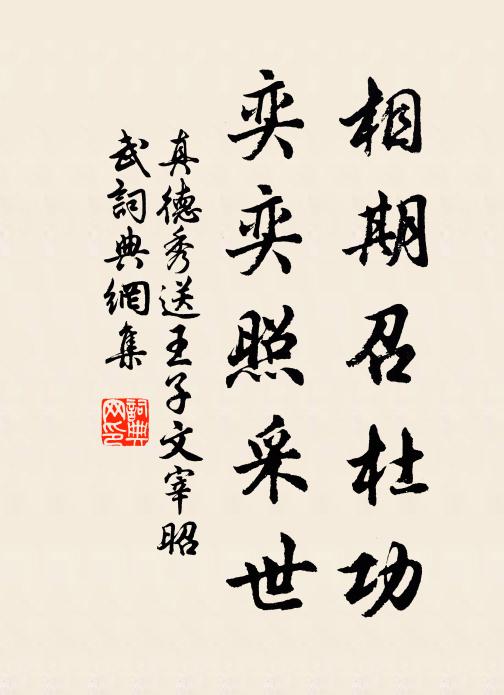 相期召杜功
奕奕照采世
真德秀送王子文宰昭
武詞典網集
詞典網印